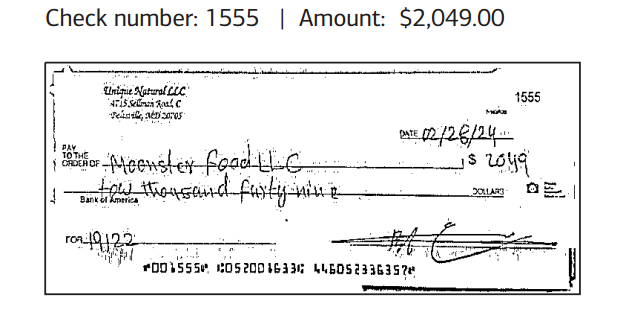 Check number: 1555 | Amount: $2,049.00
Unique Natural LLC
4715 Sellman Road, C
Beltsville, MD 20705
1555
DATE 02/26/24
PAY
TO THE
ORDER OF Moonster Food LLC $ 2049
tow thousand forty nine DOLLARS
Bank of America
FOR 19122
⑈001555⑈ ⑆052001633⑆ 446052336357⑈